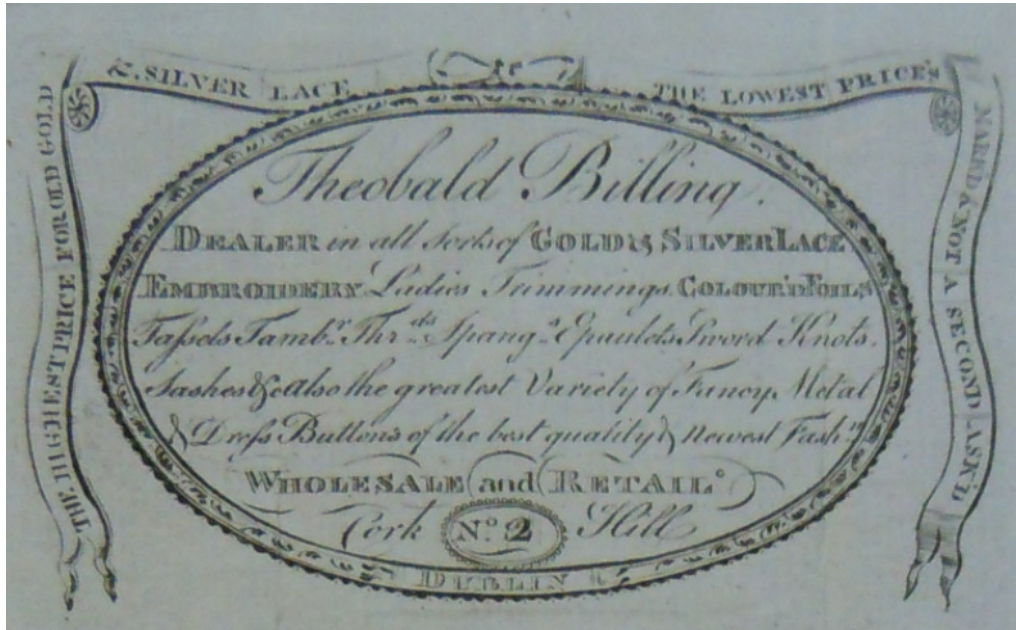 THE HIGHEST PRICE FOR OLD GOLD
& SILVER LACE
THE LOWEST PRICE'S
MARK'D & NOT A SECOND ASK'D
Theobald Billing.
DEALER in all Sorts of GOLD & SILVER LACE
EMBROIDERY Ladies Trimmings COLOUR'D FOILS
Tassels Tambr. Thrds. Spangs. Epaulets Sword Knots.
Sashes &c also the greatest Variety of Fancy Metal
& Dress Buttons of the best quality & newest Fashn.
WHOLESALE and RETAIL
Cork No. 2 Hill
DUBLIN